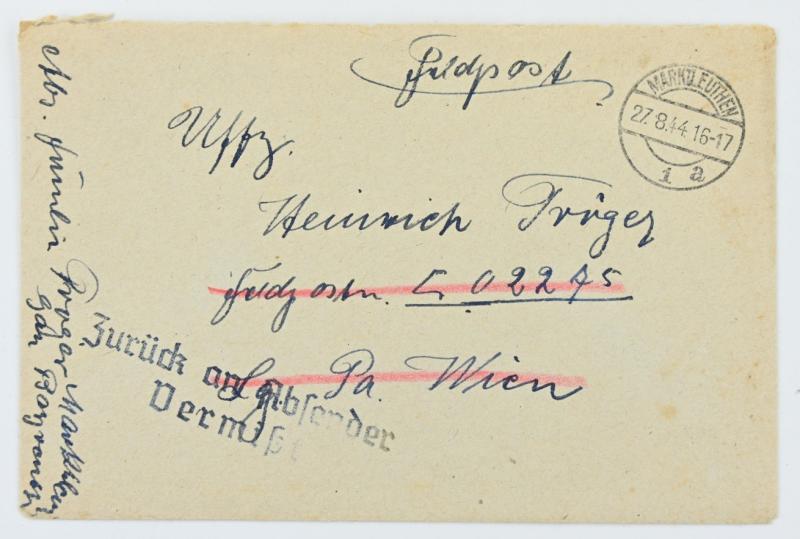 Feldpost
MARKTLEUTHEN
27.8.44.16-17
1 a
Uffz.
Heinrich Tröger
Feldpostn. L 02275
Lg. Pa. Wien
Zurück an Absender
Vermißt
Abs. Familie Tröger
Gau Bayreuth